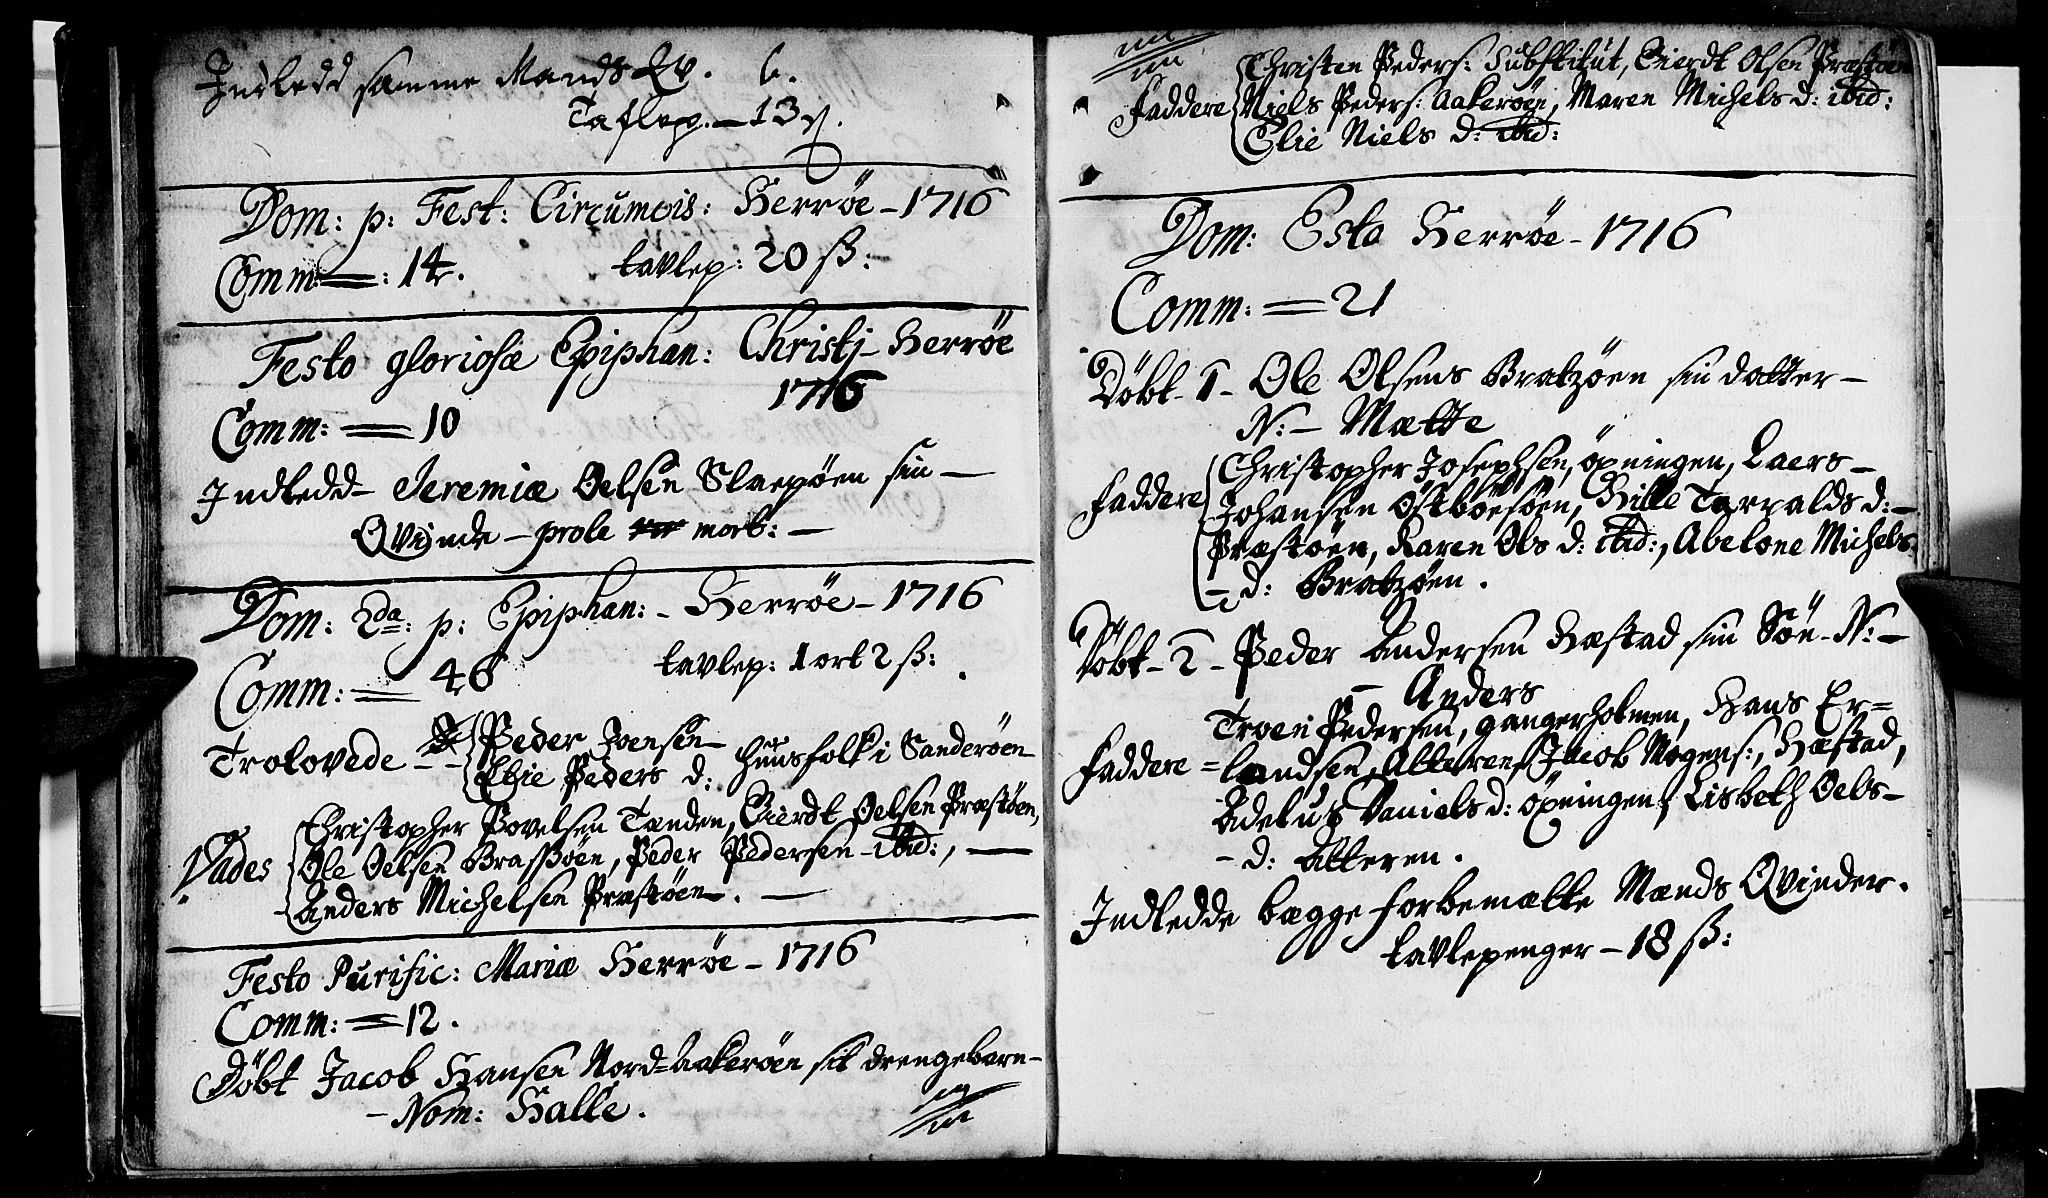 Indledd samme Mands Qv. 6.
Taflep. — 13 ß.
Dom: p: Fest: Circumcis: Herrøe – 1716
Comm: = : 14. tavlep: 20 ß:
Festo gloriosæ Epiphan: Christj – Herrøe
1716
Comm: = 10
Indledd – Jeremiæ Oelsen Slaepøen sin –
Qvinde – prole mort: –
Dom: 2da: p: Epiphan: – Herrøe – 1716
Comm: = 46 tavlep: 1 ort 2 ß:
Trolovede – Peder Joensen –
Elsie Peders d: huusfolk i Sanderøen
Christopher Povelsen Tænden, Gierdt Oelsen Præstøen,
Vades Ole Oelsen Brassøen, Peder Pedersen – ibid:, —
Anders Michelsen Præstøen – . —
Festo Purific: Mariæ Herrøe – 1716
Comm: = 12.
Døbt Jacob Hansen Nord=Aakerøen sit drengebarn –
– Nom: Halle.
Christen Peders: Substitut, Gierdt Olsen Præstøen
Faddere Niels Peders: Aakerøen, Maren Michels d: ibid:
Elie Niels d: ibid:
Dom: Esto Herrøe – 1716
Comm: = 21
Døbt – 1 – Ole Olsens Bratzøen sin datter –
N: – Mætte
Christopher Josephsen, öpningen, Laers –
Faddere Johansen Østbøesøen, Kille Tarralds d: –
Præstøen, Karen Ols d: ibid:, Abelone Michels
– d: Bratzøen.
Døbt – 2 – Peder Andersen Hæstad sin Søn – N: –
– Anders
Troen Pedersen, gangerholmen, Hans Er=
Faddere =landsen, Alteren, Jacob Mogens:, Hæstad,
Adelus Daniels d: öpningen, Lisbeth Oels –
– d: Alteren.
Indledde begge forbemælte Mænds Qvinder.
tavlepenger – 18 ß: